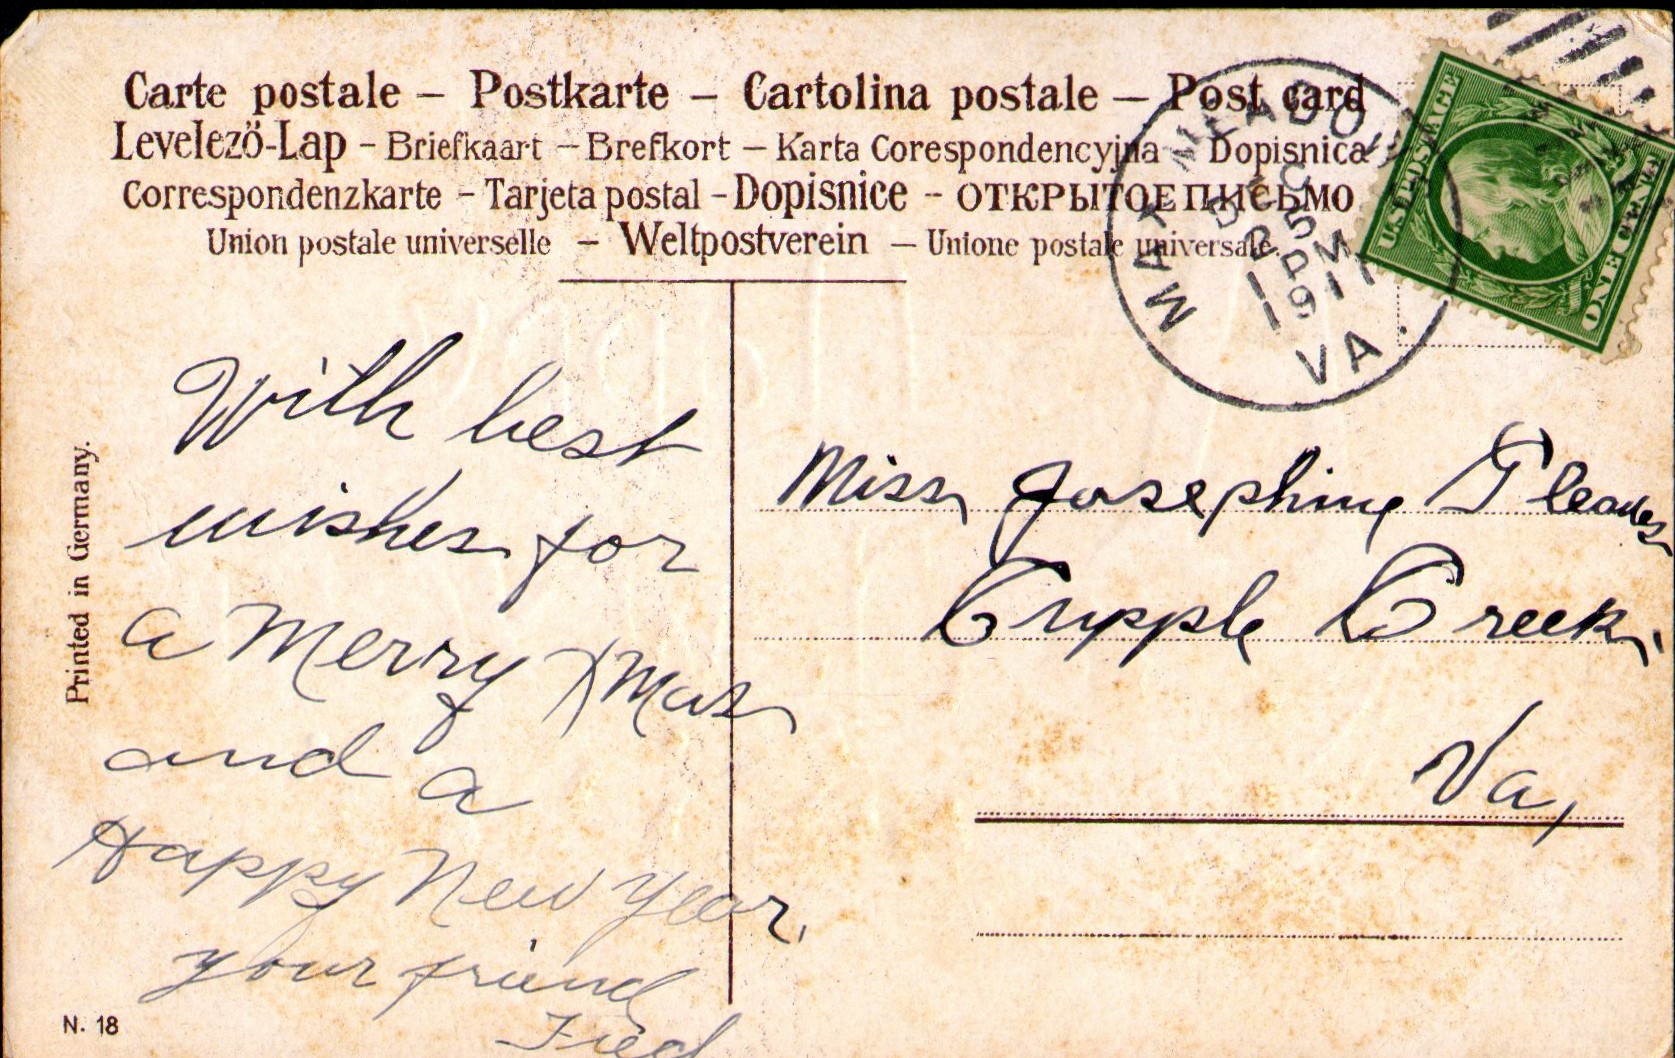 Carte postale – Postkarte – Cartolina postale – Post card
Levelező-Lap – Briefkaart – Brefkort – Karta Corespondencyjna – Dopisnica
Correspondenzkarte – Tarjeta postal – Dopisnice – ОТКРЫТОЕ ПИСЬМО
Union postale universelle – Weltpostverein – Unione postale universale.
MAX MEADOWS
DEC
25
1 PM
1911
VA.
U.S. POSTAGE
ONE CENT
Printed in Germany.
With best
wishes for
a Merry Xmas
and a
Happy New Year,
your friend
Fred
Miss Josephine
Cripple Creek,
Va,
N. 18